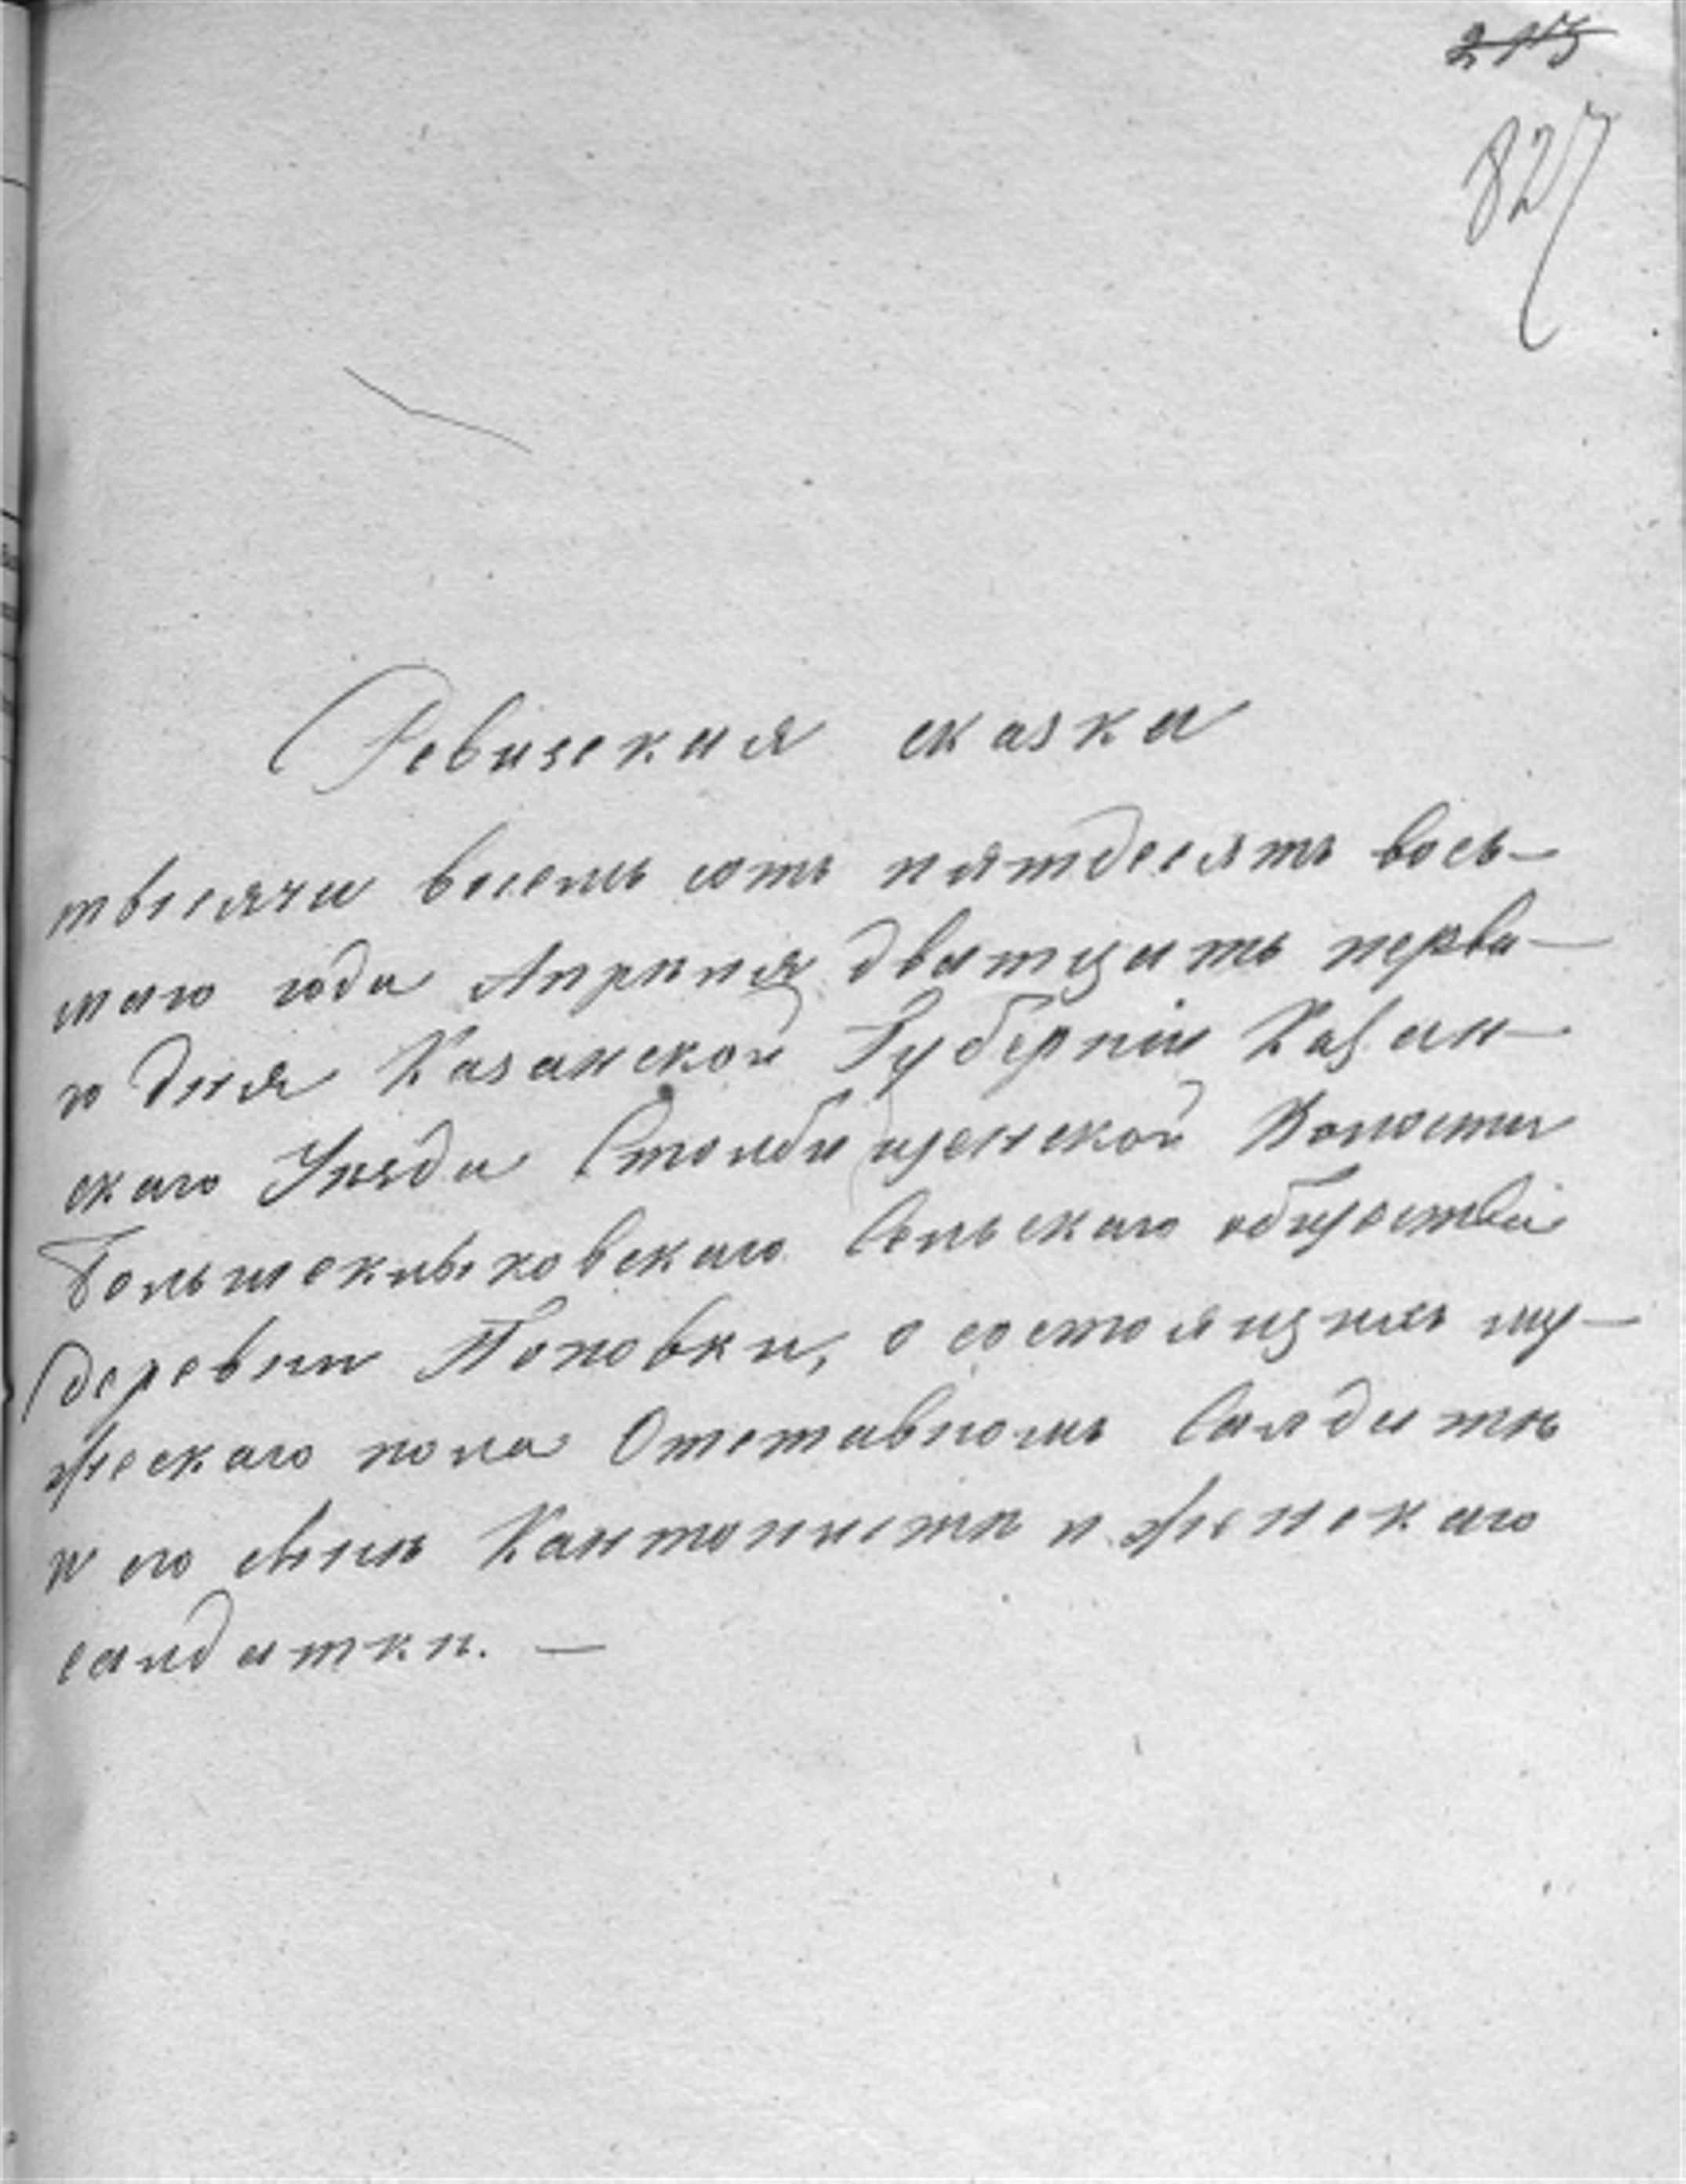 213
827
Ревизская сказка
тысячи восемь сотъ пятдесятъ вось-
маго года Апрѣля дватцать перва-
го дня Казанской Губерніи Казан-
скаго Уѣзда Столбищенской Волости
Большеклыковскаго Сельскаго общества
деревни Поповки, о состоящихъ му-
жескаго пола Отставномъ Салдатѣ
и его сынѣ Кантонистѣ и женскаго
салдатки. —